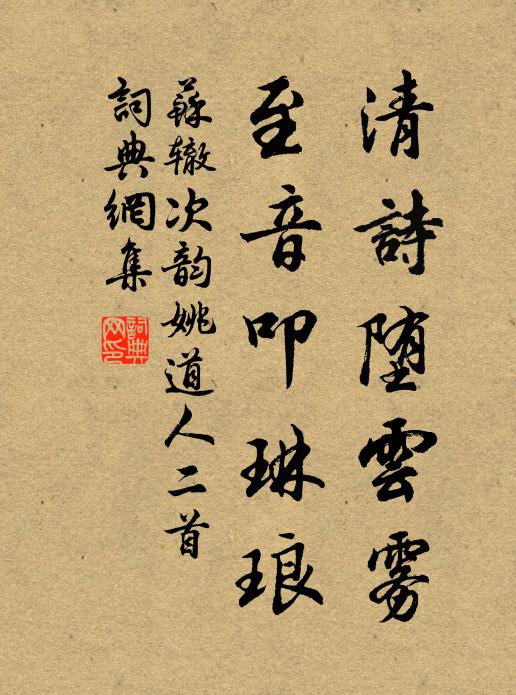 清詩堕雲雾
至音叩琳琅
蘇辙次韵姚道人二首
詞典網集
詞典网印